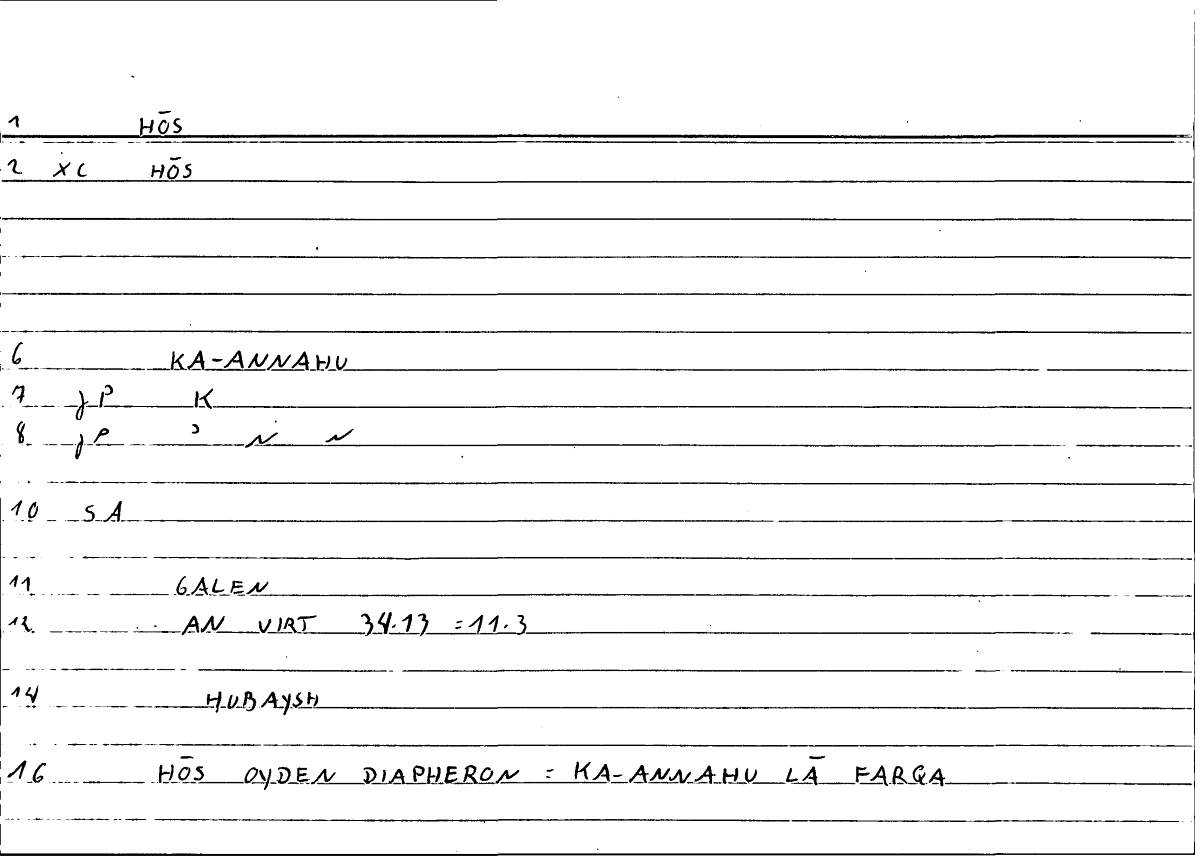 1 HŌS
2 XC HŌS
6 KA-ANNAHU
7 jP K
8 jP ɔ N N
10 SA
11 GALEN
12 AN VIRT 34.13 = 11.3
14 HUBAYSH
16 HŌS OYDEN DIAPHERON = KA-ANNAHU LĀ FARQA